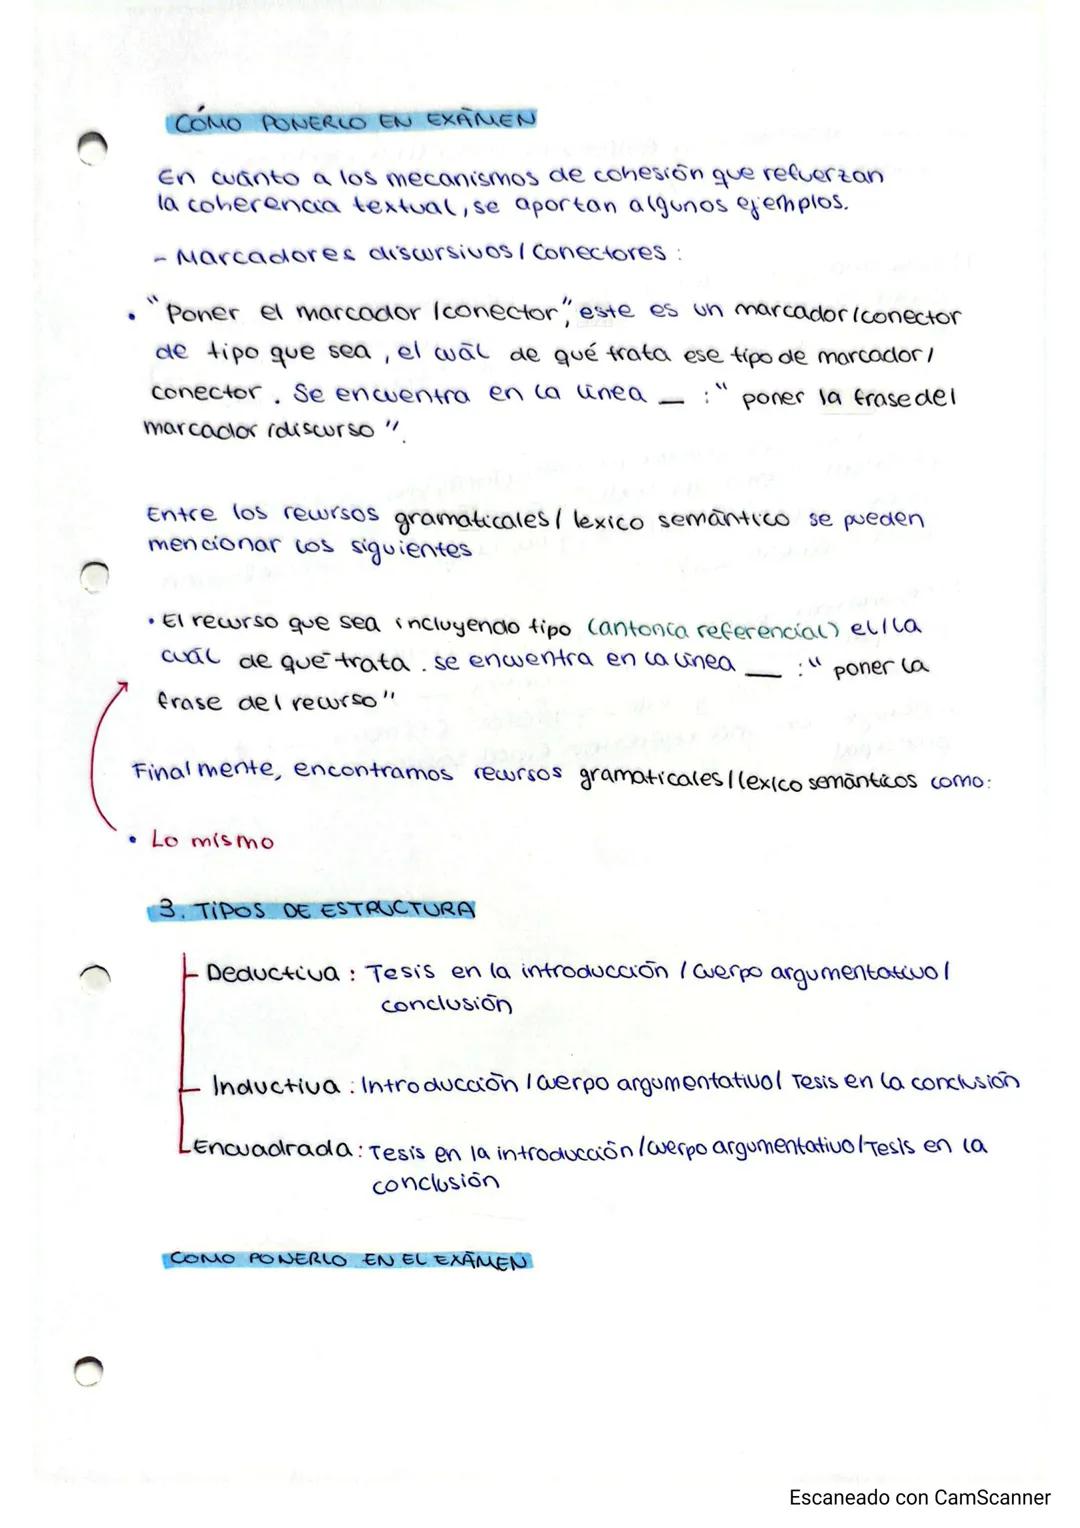 CÓMO PONERLO EN EXÁMEN
En cuánto a los mecanismos de cohesión que refuerzan
la coherencia textual, se aportan algunos ejemplos.
- Marcadores discursivos / Conectores :
• "Poner el marcador / conector", este es un marcador / conector
de tipo que sea, el cuál de qué trata ese tipo de marcador /
conector. Se encuentra en la línea _ : " poner la frase del
marcador / discurso ".
Entre los recursos gramaticales / lexico semántico se pueden
mencionar los siguientes
• El recurso que sea incluyendo tipo (antonia referencial) el / la
cuál de qué trata. se encuentra en la línea _ : " poner la
frase del recurso "
Finalmente, encontramos recursos gramaticales / lexico semánticos como:
• Lo mismo
3. TIPOS DE ESTRUCTURA
Deductiva : Tesis en la introducción / Cuerpo argumentativo /
conclusión
Inductiva : Introducción / cuerpo argumentativo / Tesis en la conclusión
Encuadrada : Tesis en la introducción / cuerpo argumentativo / Tesis en la
conclusión
COMO PONERLO EN EL EXÁMEN
Escaneado con CamScanner